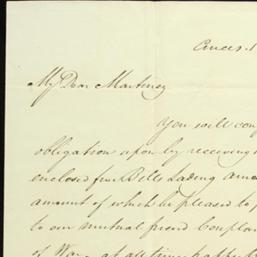 My Dear Martinez
You will conf
obligation upon by receiving
enclosed five Bills Lading amo
amount of which be pleased to p
to our mutual friend
of War at all times